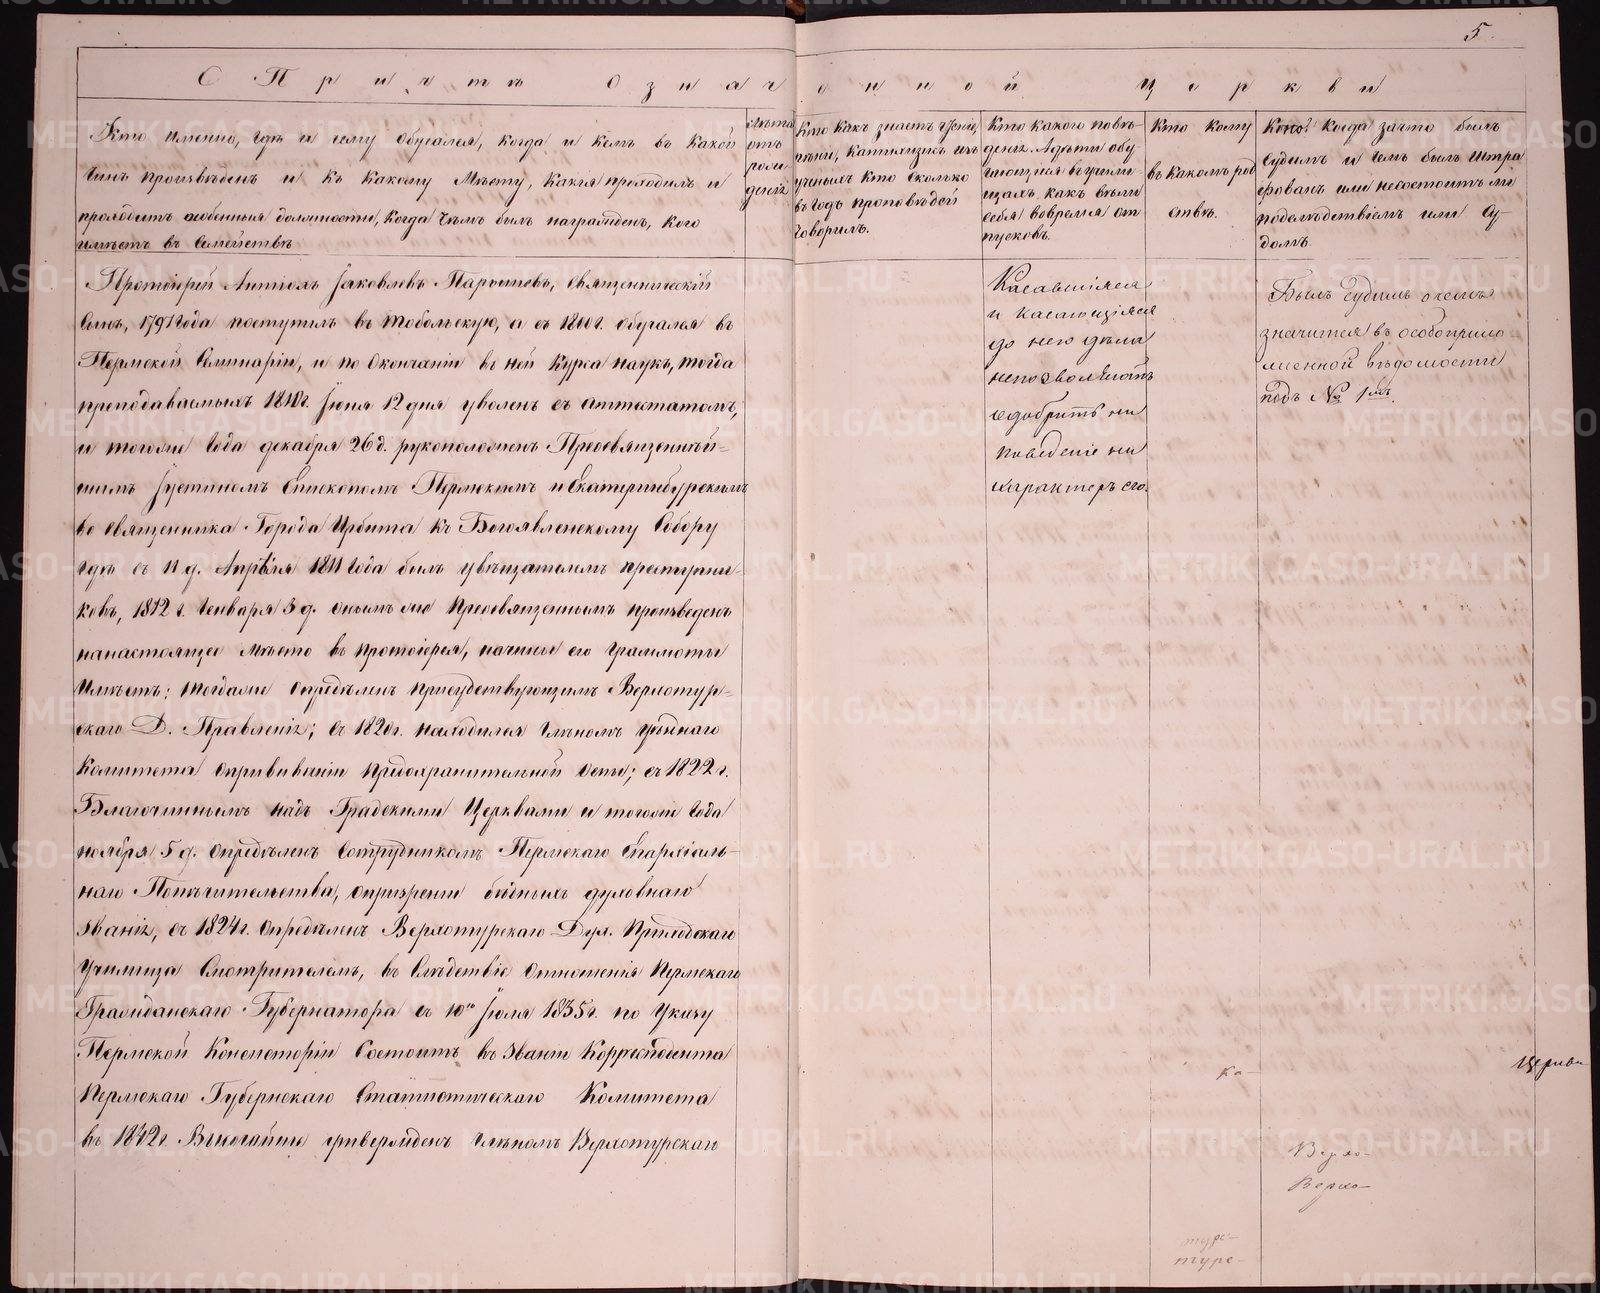 5.
О Причтѣ означенной Церкви
Кто именно, гдѣ и чему обучался, когда и кемъ въ какой
чинъ произвѣденъ и къ какому мѣсту, какія проходилъ и
проходитъ особенныя должности, когда чѣмъ былъ награжденъ, кого
имѣетъ въ семействѣ
Лѣта
отъ
рож
денія
Кто какъ знаетъ чтеніе,
пѣніе, катихизисъ изъ
ученыхъ кто сколько
въ годъ проповѣдей
говорилъ.
Кто какого повѣ-
денія. А дѣти обу
чающіяся въ учили-
щахъ какъ вѣли
себя вовремя от
пусковъ.
Кто кому
въ какомъ род
ствѣ.
Кто когда зачто былъ
судимъ и чемъ былъ штра
фованъ или несостоитъ ли
подслѣдствіемъ или су-
домъ.
Протоіерей Антіохъ Іаковлевъ Парышевъ, священническій
сынъ, 1797 года поступилъ въ Тобольскую, а съ 1800 г. обучался въ
Пермской Семинаріи, и по окончаніи въ ней курса наукъ, тогда
преподаваемыхъ 1810 г. Іюня 12 дня уволенъ съ аттестатомъ,
и тогоже года декабря 26 д. рукоположенъ Преосвященнѣй-
шимъ Іустиномъ Епископомъ Пермскимъ и Екатеринбургскимъ
во священника города Ирбита къ Богоявленскому Собору
гдѣ съ 11 д. Апрѣля 1811 года былъ увѣщателемъ преступни-
ковъ, 1812 г. Генваря 3 д. онымъ же Преосвященнымъ произведенъ
нанастоящее мѣсто въ протоіерея, начины его граммоты
имѣетъ; тогдаже опредѣленъ присудствующимъ Верхотур-
скаго Д. Правленія; съ 1820 г. находился членомъ уѣзднаго
Комитета оприваніи предохранительной оспы; съ 1822 г.
Благочиннымъ надъ Градскими Церквами и тогоже года
ноября 5 д. опредѣленъ сотрудникомъ Пермскаго Епархіаль-
наго Попѣчительства, опризреніи бѣдныхъ духовнаго
званія, съ 1824 г. опредѣленъ Верхотурскаго Дух. Приходскаго
Училища Смотрителемъ, въ слѣдствіе отношенія Пермскаго
Гражданскаго Губернатора съ 10го Іюля 1835 г. по Указу
Пермской Консисторіи состоитъ въ званіи Корреспондента
Пермскаго Губернскаго Статистическаго Комитета
въ 1842 г Высочайше утвержденъ членомъ Верхотурскаго
Касавшіяся
и касающіяся
до него дѣла
непозволяютъ
одобрить ни
поведеніе ни
характеръ его.
Былъ судимъ о чемъ
значится въ особоприло
женной вѣдомости
подъ № 1мъ.
ка-
Церкви
Верхо-
Верхо-
туре-
туре-